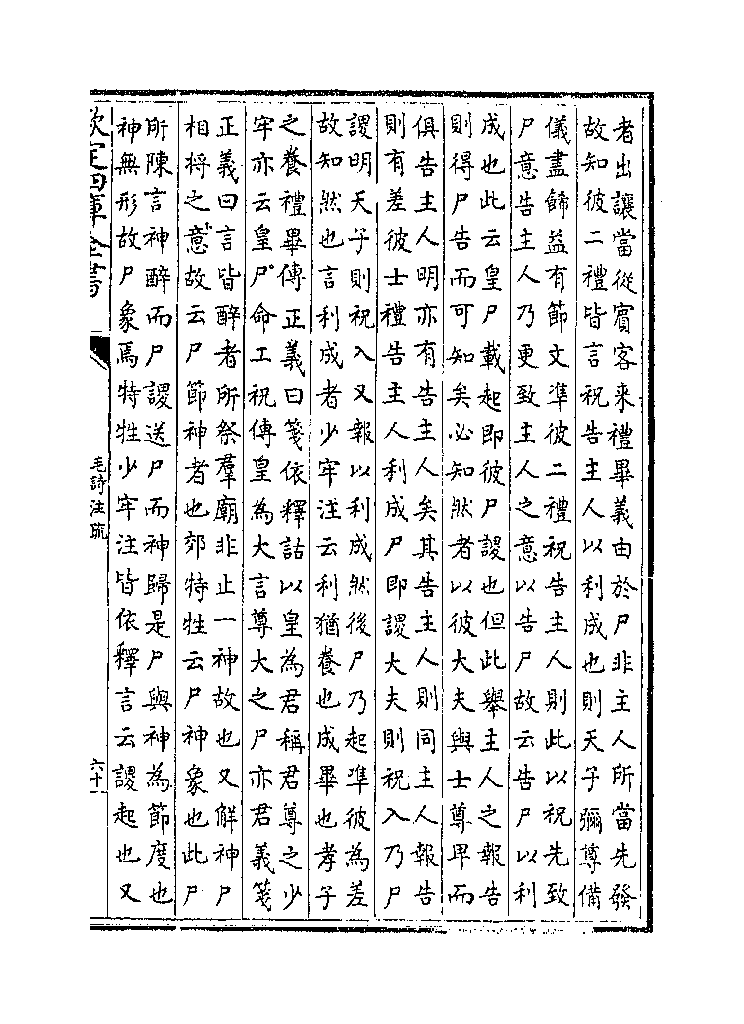 者出讓當從賓客來禮畢義由於尸非主人所當先發
故知彼二禮皆言祝告主人以利成也則天子彌尊備
儀盡飾益有節文準彼二禮祝告主人則此以祝先致
尸意告主人乃更致主人之意以告尸故云告尸以利
成也此云皇尸載起即彼尸謖也但此舉主人之報告
則得尸告而可知矣必知然者以彼大夫與士尊卑而
俱告主人明亦有告主人矣其告主人則同主人報告
則有差彼士禮告主人利成尸即謖大夫則祝入乃尸
謖明天子則祝入又報以利成然後尸乃起準彼為差
故知然也言利成者少牢注云利猶養也成畢也孝子
之養禮畢傳正義曰箋依釋詁以皇為君稱君尊之少
牢亦云皇尸命工祝傳皇為大言尊大之尸亦君義箋
正義曰言皆醉者所祭羣廟非止一神故也又解神尸
相將之意故云尸節神者也郊特牲云尸神象也此尸
所陳言神醉而尸謖送尸而神歸是尸與神為節度也
神無形故尸象焉特牲少牢注皆依釋言云謖起也又
欽定四庫全書
毛詩注疏
六十一